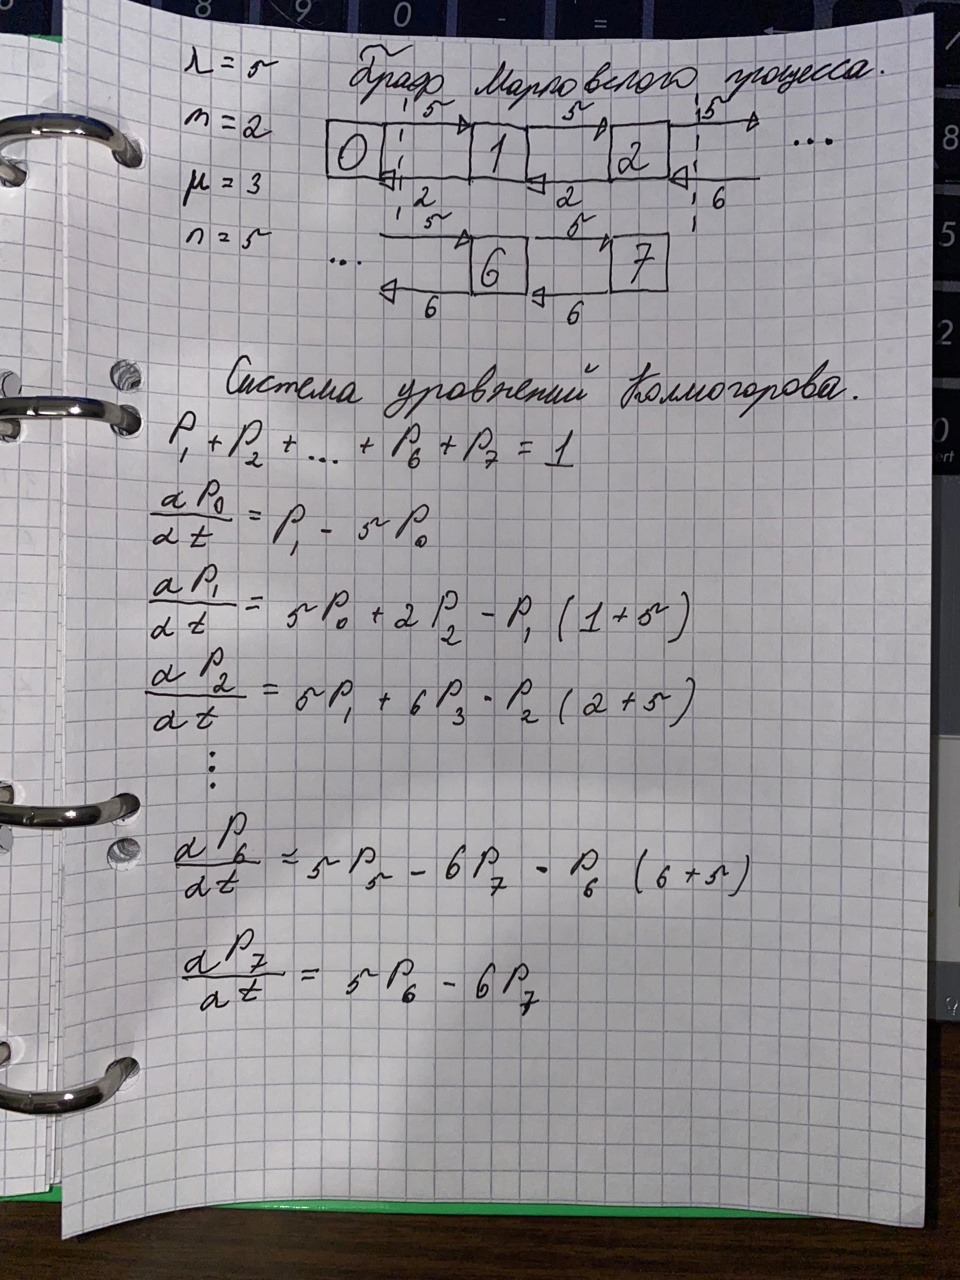 λ = 5 Граф Марковского процесса.
m = 2
μ = 3
n = 5
5 5 5
0 1 2 ...
2 2 6
5 5
... 6 7
6 6
Система уравнений Колмогорова.
P₁ + P₂ + ... + P₆ + P₇ = 1
dP₀/dt = P₁ - 5P₀
dP₁/dt = 5P₀ + 2P₂ - P₁ (1+5)
dP₂/dt = 5P₁ + 6P₃ - P₂ (2+5)
⋮
dP₆/dt = 5P₅ - 6P₇ - P₆ (6+5)
dP₇/dt = 5P₆ - 6P₇